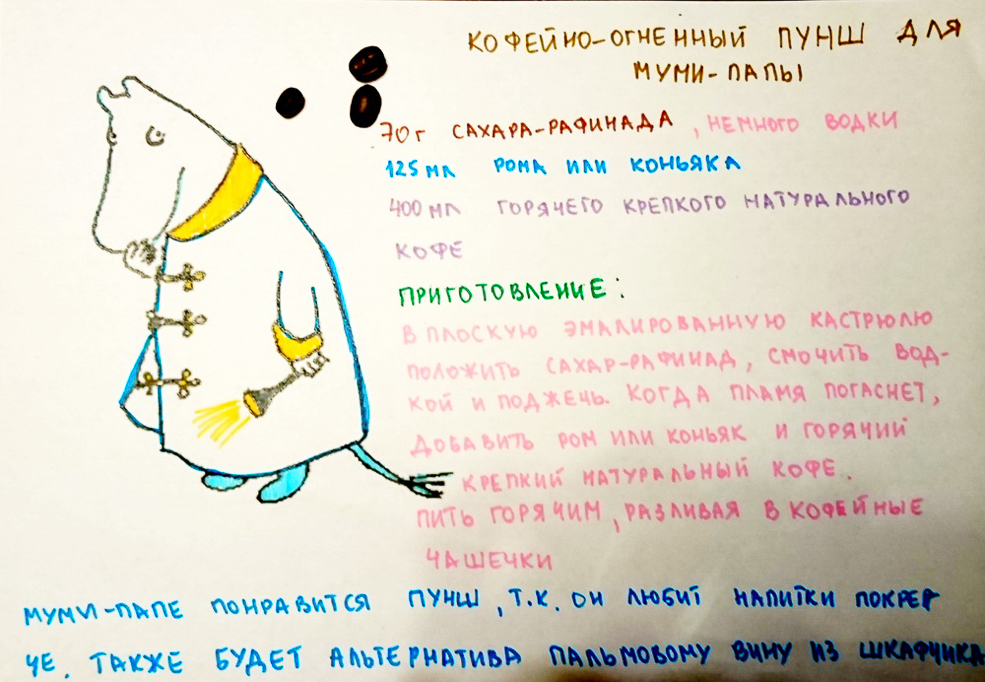 КОФЕЙНО-ОГНЕННЫЙ ПУНШ ДЛЯ
МУМИ-ПАПЫ
70 г САХАРА-РАФИНАДА, НЕМНОГО ВОДКИ
125 МЛ РОМА ИЛИ КОНЬЯКА
400 МЛ ГОРЯЧЕГО КРЕПКОГО НАТУРАЛЬНОГО
КОФЕ
ПРИГОТОВЛЕНИЕ:
В ПЛОСКУЮ ЭМАЛИРОВАННУЮ КАСТРЮЛЮ
ПОЛОЖИТЬ САХАР-РАФИНАД, СМОЧИТЬ ВОД-
КОЙ И ПОДЖЕЧЬ. КОГДА ПЛАМЯ ПОГАСНЕТ,
ДОБАВИТЬ РОМ ИЛИ КОНЬЯК И ГОРЯЧИЙ
КРЕПКИЙ НАТУРАЛЬНЫЙ КОФЕ.
ПИТЬ ГОРЯЧИМ, РАЗЛИВАЯ В КОФЕЙНЫЕ
ЧАШЕЧКИ
МУМИ-ПАПЕ ПОНРАВИТСЯ ПУНШ, Т.К. ОН ЛЮБИТ НАПИТКИ ПОКРЕП
ЧЕ. ТАКЖЕ БУДЕТ АЛЬТЕРНАТИВА ПАЛЬМОВОМУ ВИНУ ИЗ ШКАФЧИКА